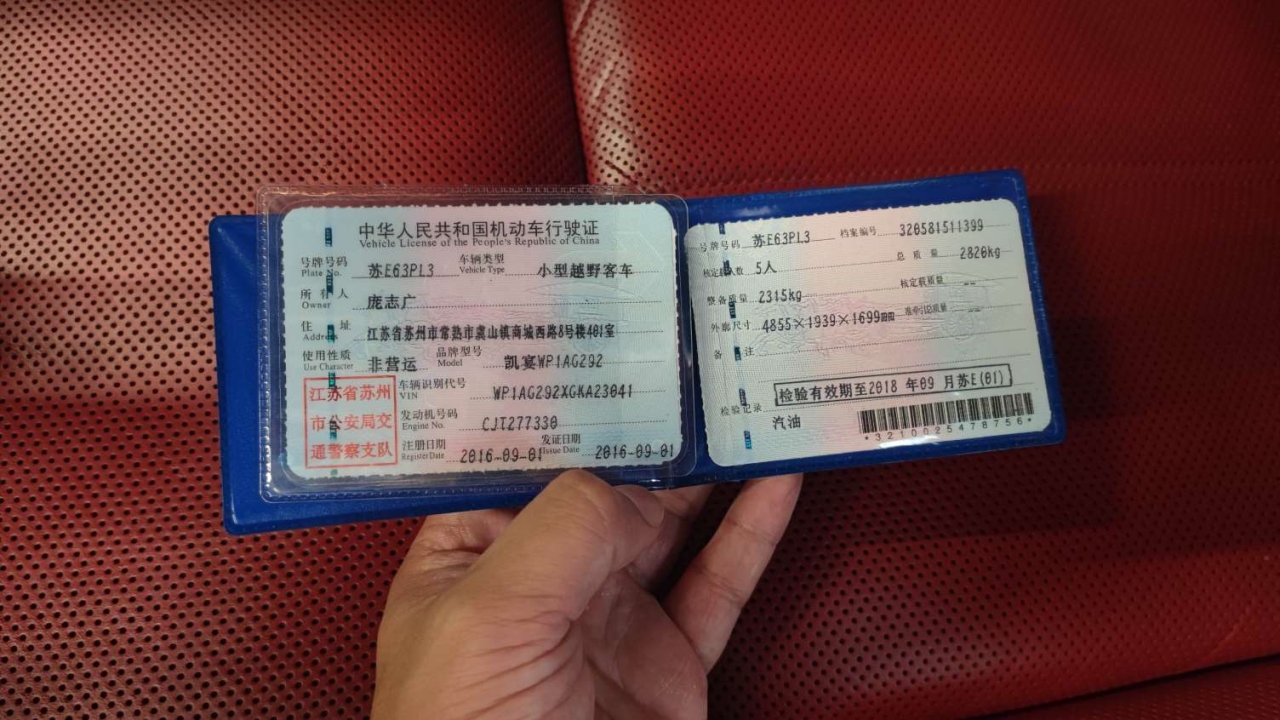 中华人民共和国机动车行驶证
Vehicle License of the People's Republic of China
号牌号码 苏E63PL3 车辆类型 小型越野客车
Plate No. Vehicle Type
所有人 庞志广
Owner
住址 江苏省苏州市常熟市虞山镇商城西路8号楼401室
Address
使用性质 非营运 品牌型号 凯宴WP1AG292
Use Character Model
江苏省苏州
市公安局交
通警察支队
车辆识别代号 WP1AG292XGKA23041
VIN
发动机号码 CJT277330
Engine No.
注册日期 2016-09-01 发证日期 2016-09-01
Register Date Issue Date
号牌号码 苏E63PL3 档案编号 320581511399
核定载人数 5人 总质量 2820kg
整备质量 2315kg 核定载质量 --
外廓尺寸 4855×1939×1699mm 准牵引总质量 --
备注
检验有效期至2018年09月苏E(01)
检验记录
汽油
*3210025478756*